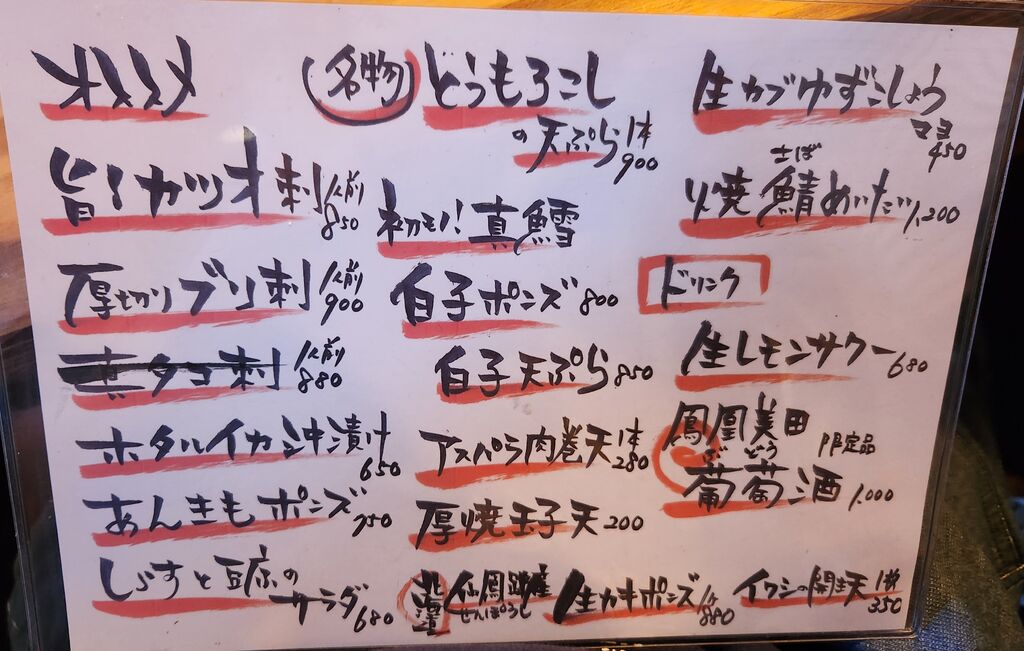 オススメ
旨しカツオ刺 1人前 850
厚切りブリ刺 1人前 900
真タコ刺 1人前 880
ホタルイカ沖漬け 650
あんきもポンズ 750
しらすと豆腐の
サラダ 680
名物 どうもろこし
の天ぷら 1本 900
初モノ! 真鱈
白子ポンズ 800
白子天ぷら 850
アスパラ肉巻天 1本 280
厚焼玉子天 200
北海道 仙鳳趾産 せんぽうし 生カキポンズ 1ケ 880
生カブゆずこしょう
マヨ 450
さば
焼鯖めんたい 1,200
ドリンク
生レモンサワー 680
鳳凰美田 限定品
ぶどう
葡萄酒 1,000
イワシの開き天 1枚 350